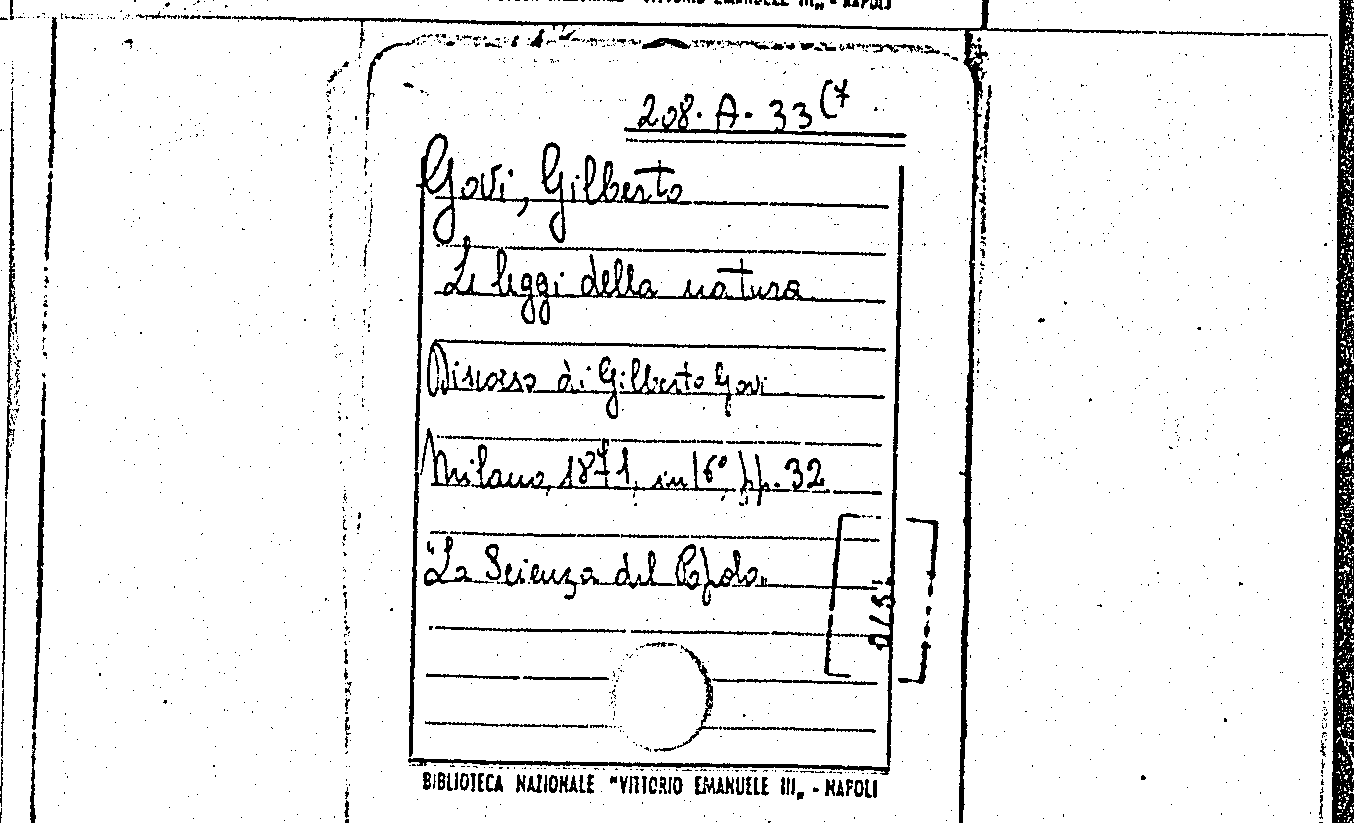 BIBLIOTECA NAZIONALE "VITTORIO EMANUELE III„ - NAPOLI
208. A. 33(7
Govi, Gilberto
Le leggi della natura
Discorso di Gilberto Govi
Milano, 1871, in 16°, pp. 32
"La Scienza del Popolo„
BIBLIOTECA NAZIONALE "VITTORIO EMANUELE III„ - NAPOLI